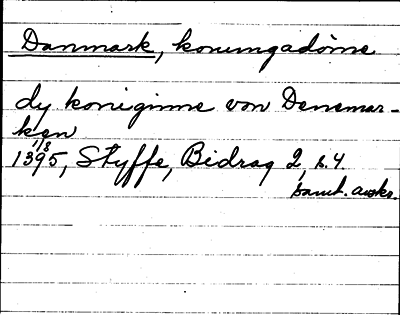 Danmark, konungadöme
dy koniginne von Denemar-
ken
1/8
1395, Styffe, Bidrag 2, s. 4.
samt. avskr.